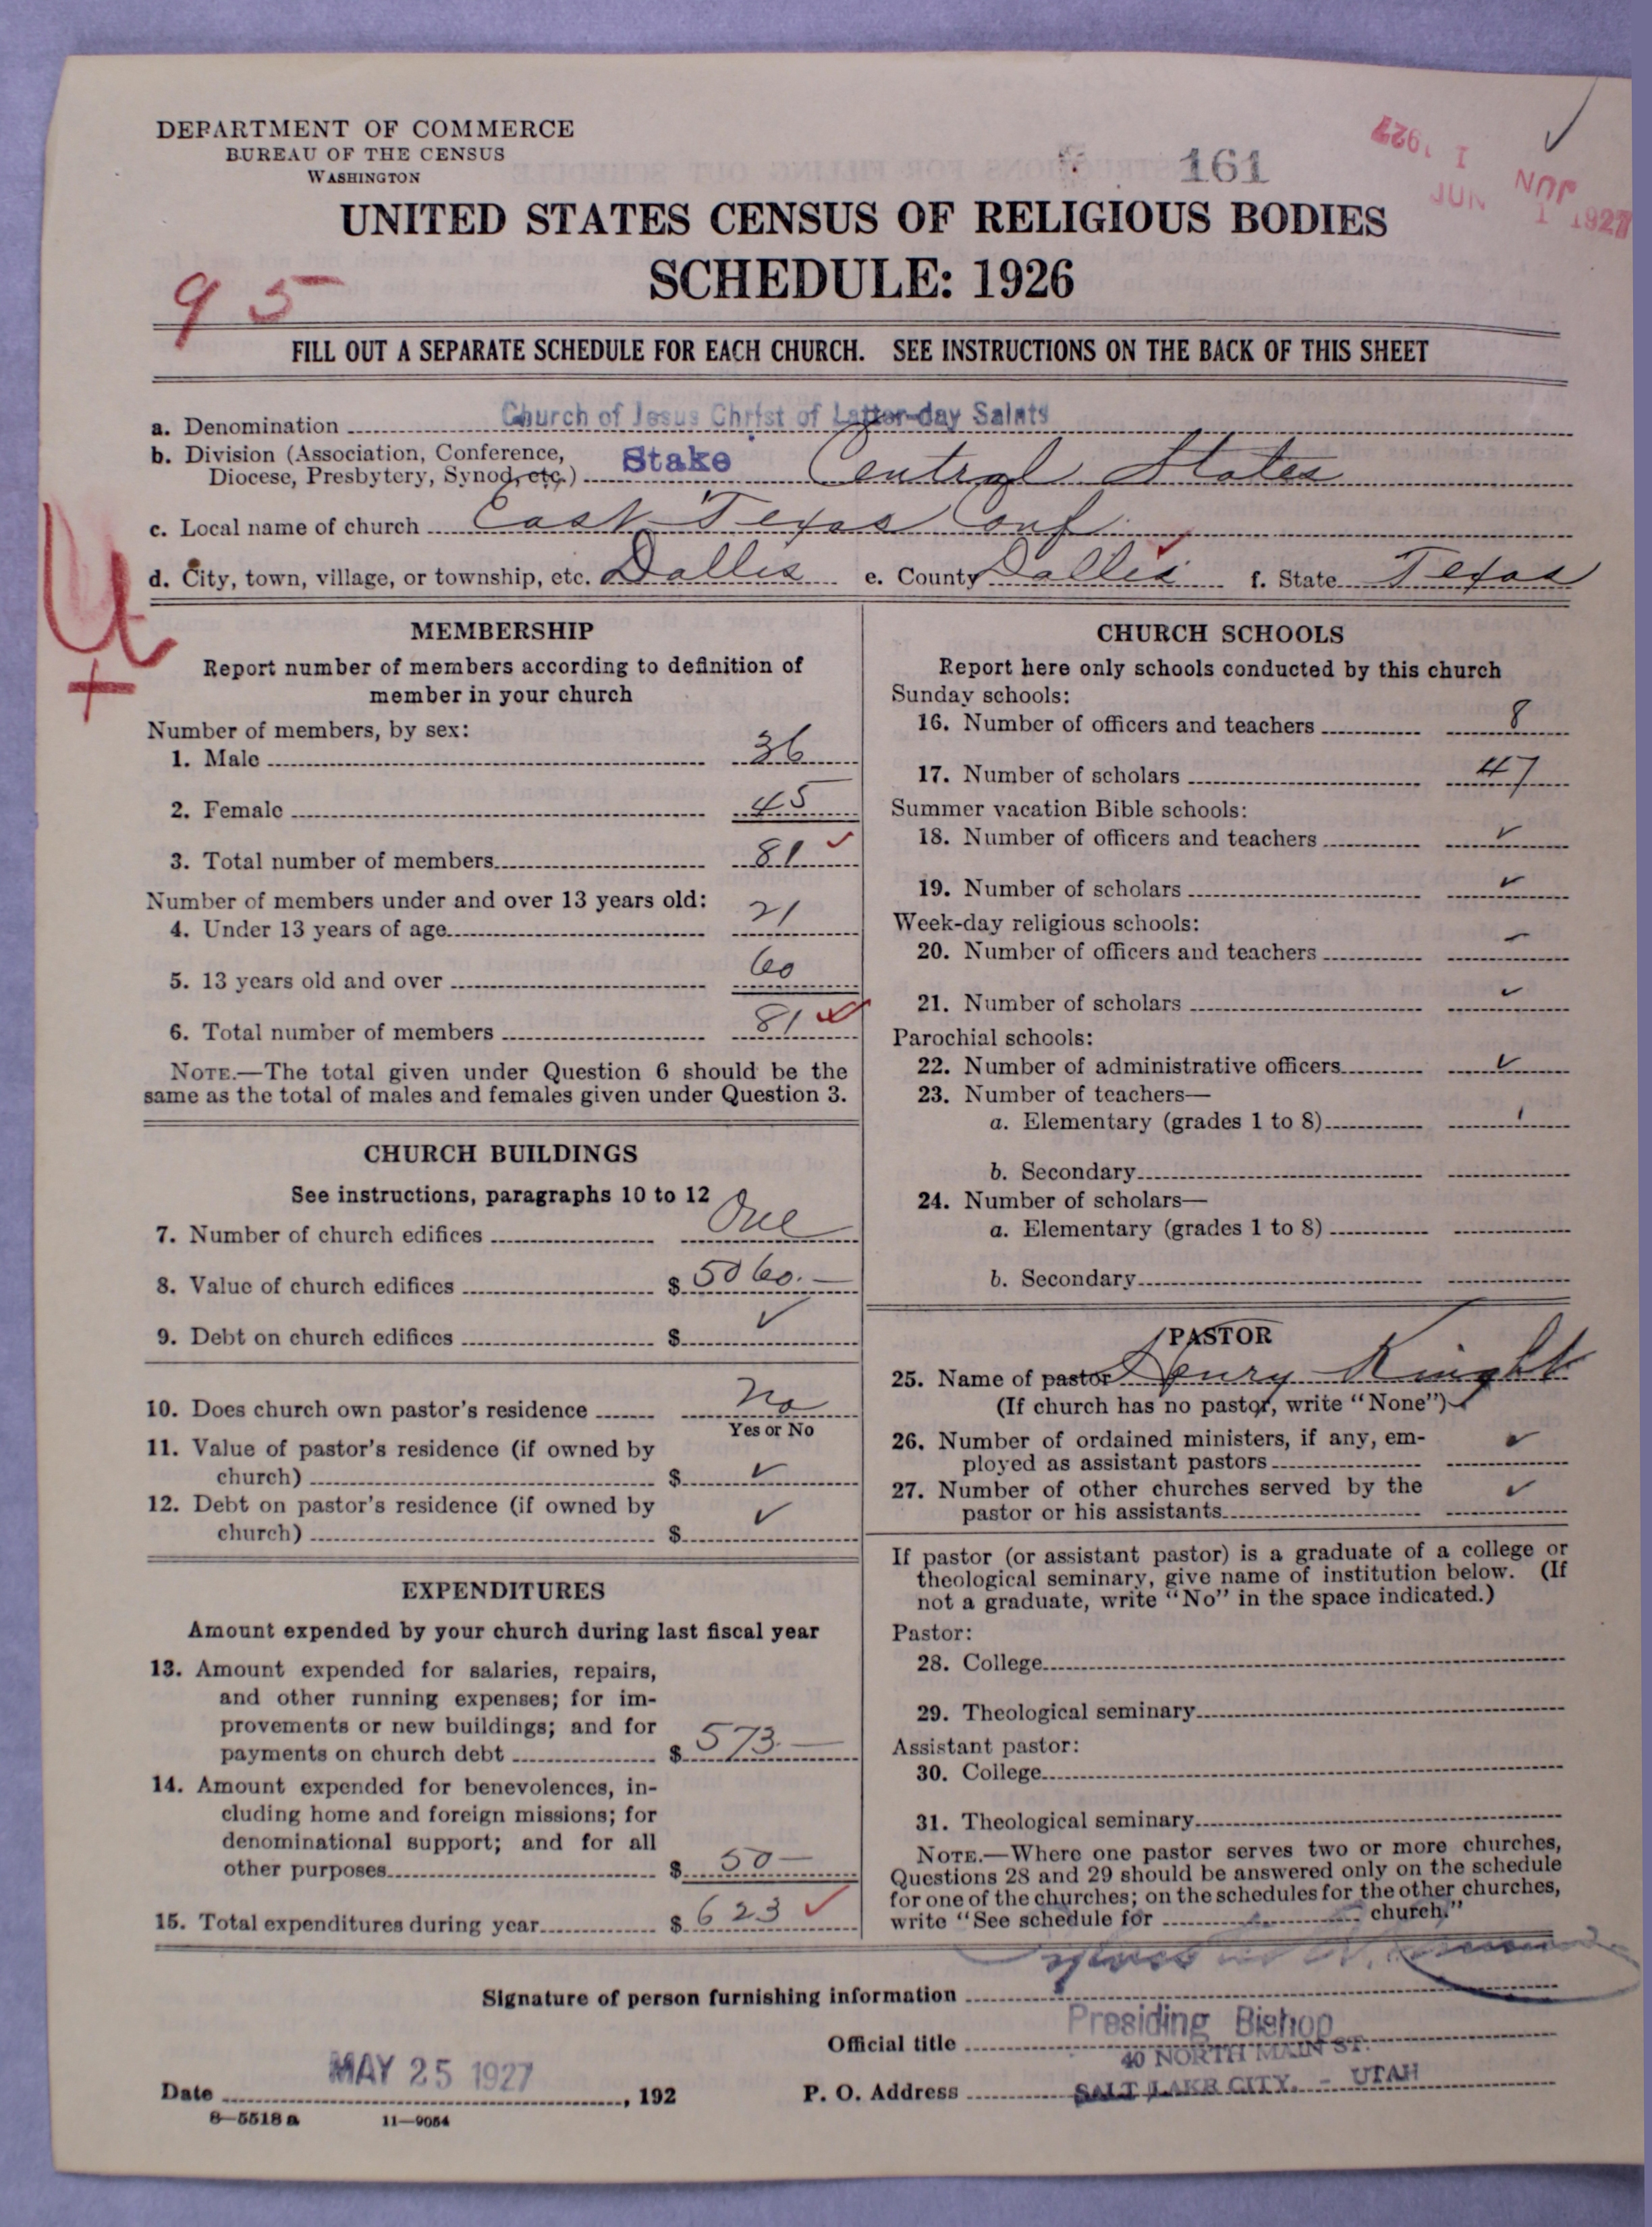 DEPARTMENT OF COMMERCE
BUREAU OF THE CENSUS
WASHINGTON
161
JUN 1 1927
JUN 1 1927
UNITED STATES CENSUS OF RELIGIOUS BODIES
SCHEDULE: 1926
95
FILL OUT A SEPARATE SCHEDULE FOR EACH CHURCH. SEE INSTRUCTIONS ON THE BACK OF THIS SHEET
a. Denomination Church of Jesus Christ of Latter-day Saints
b. Division (Association, Conference,
Diocese, Presbytery, Synod, etc.) Stake Central States
c. Local name of church East Texas Conf.
d. City, town, village, or township, etc. Dallis e. County Dallis f. State Texas
MEMBERSHIP
Report number of members according to definition of
member in your church
Number of members, by sex:
1. Male 36
2. Female 45
3. Total number of members 81
Number of members under and over 13 years old:
4. Under 13 years of age 21
5. 13 years old and over 60
6. Total number of members 81
NOTE.—The total given under Question 6 should be the
same as the total of males and females given under Question 3.
CHURCH BUILDINGS
See instructions, paragraphs 10 to 12
7. Number of church edifices One
8. Value of church edifices $ 5060.—
9. Debt on church edifices $ ✓
10. Does church own pastor's residence No
Yes or No
11. Value of pastor's residence (if owned by
church) $ ✓
12. Debt on pastor's residence (if owned by
church) $ ✓
EXPENDITURES
Amount expended by your church during last fiscal year
13. Amount expended for salaries, repairs,
and other running expenses; for im-
provements or new buildings; and for
payments on church debt $ 573.—
14. Amount expended for benevolences, in-
cluding home and foreign missions; for
denominational support; and for all
other purposes $ 50—
15. Total expenditures during year $ 623
CHURCH SCHOOLS
Report here only schools conducted by this church
Sunday schools:
16. Number of officers and teachers 8
17. Number of scholars 47
Summer vacation Bible schools:
18. Number of officers and teachers ✓
19. Number of scholars ✓
Week-day religious schools:
20. Number of officers and teachers
21. Number of scholars ✓
Parochial schools:
22. Number of administrative officers ✓
23. Number of teachers—
a. Elementary (grades 1 to 8)
b. Secondary
24. Number of scholars—
a. Elementary (grades 1 to 8)
b. Secondary
PASTOR
25. Name of pastor Henry Knight
(If church has no pastor, write "None")
26. Number of ordained ministers, if any, em-
ployed as assistant pastors ✓
27. Number of other churches served by the
pastor or his assistants ✓
If pastor (or assistant pastor) is a graduate of a college or
theological seminary, give name of institution below. (If
not a graduate, write "No" in the space indicated.)
Pastor:
28. College
29. Theological seminary
Assistant pastor:
30. College
31. Theological seminary
NOTE.—Where one pastor serves two or more churches,
Questions 28 and 29 should be answered only on the schedule
for one of the churches; on the schedules for the other churches,
write "See schedule for church."
Signature of person furnishing information
Official title Presiding Bishop
40 NORTH MAIN ST.
P. O. Address SALT LAKE CITY, - UTAH
Date MAY 25 1927, 192
8—5518 a 11—9054